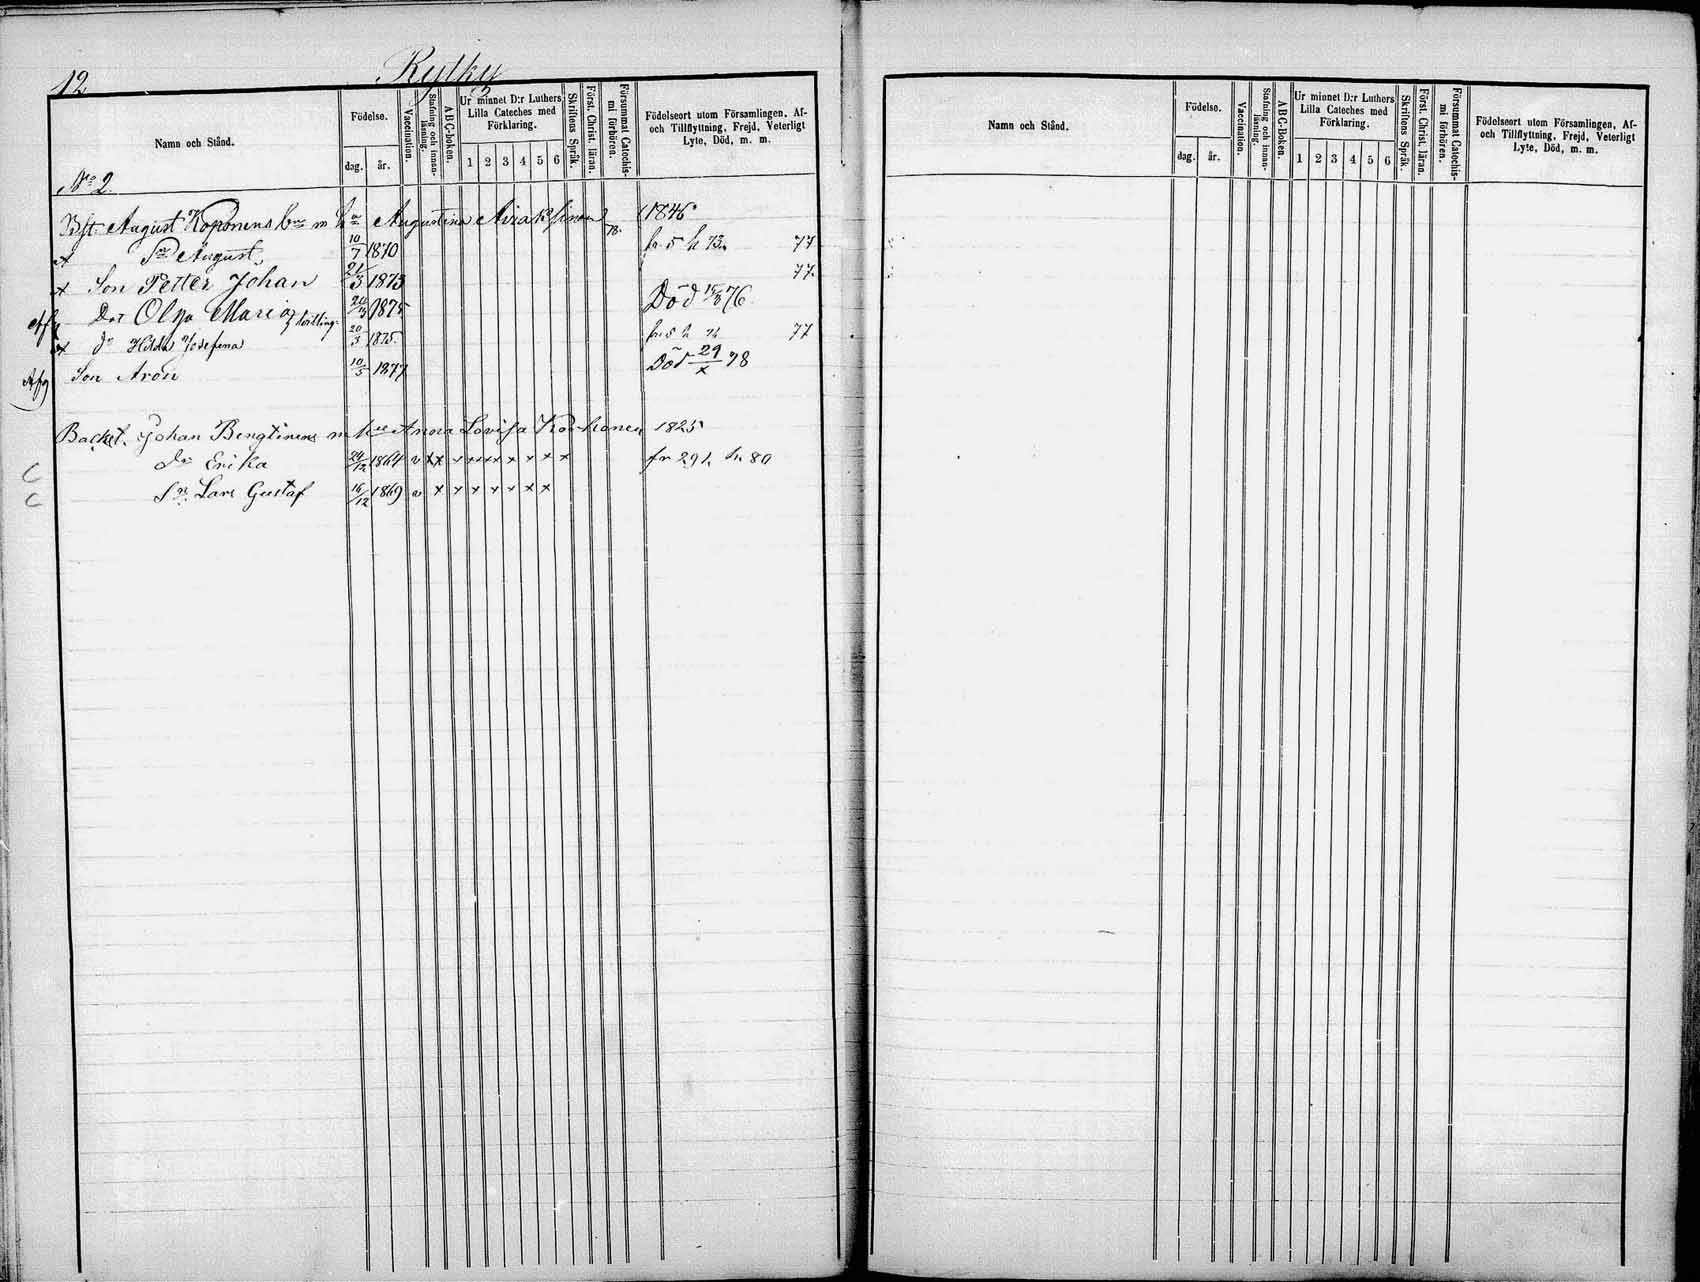 12
Kylky
Namn och Stånd.
Födelse.
dag. år.
Vaccination.
Stafning och innanläsning.
ABC-boken.
Ur minnet D:r Luthers Lilla Cateches med Förklaring.
1 2 3 4 5 6
Skriftens Språk.
Först. Christ. läran.
Försummat Catechismi förhören.
Födelseort utom Församlingen, Af- och Tillflyttning, Frejd, Veterligt Lyte, Död, m. m.
No 2.
August Koponens m h Augustina 1846
Sn August 10/7 1870 77
x Son Petter Johan 21/3 1873 77
Dor Olga Maria 1875 Död 76
x Hilda Josefina 20/3 1875 77
Afg Son Aron 10/5 1877 Död 29/x 78
Backst. Johan Bengtinens m Anna Lovisa 1825
C Dr Erika 24/12 1864 v x x x x x x x x x x 80
C Sn Lars Gustaf 16/12 1869 v x x x x x x x
Namn och Stånd.
Födelse.
dag. år.
Vaccination.
Stafning och innanläsning.
ABC-boken.
Ur minnet D:r Luthers Lilla Cateches med Förklaring.
1 2 3 4 5 6
Skriftens Språk.
Först. Christ. läran.
Försummat Catechismi förhören.
Födelseort utom Församlingen, Af- och Tillflyttning, Frejd, Veterligt Lyte, Död, m. m.